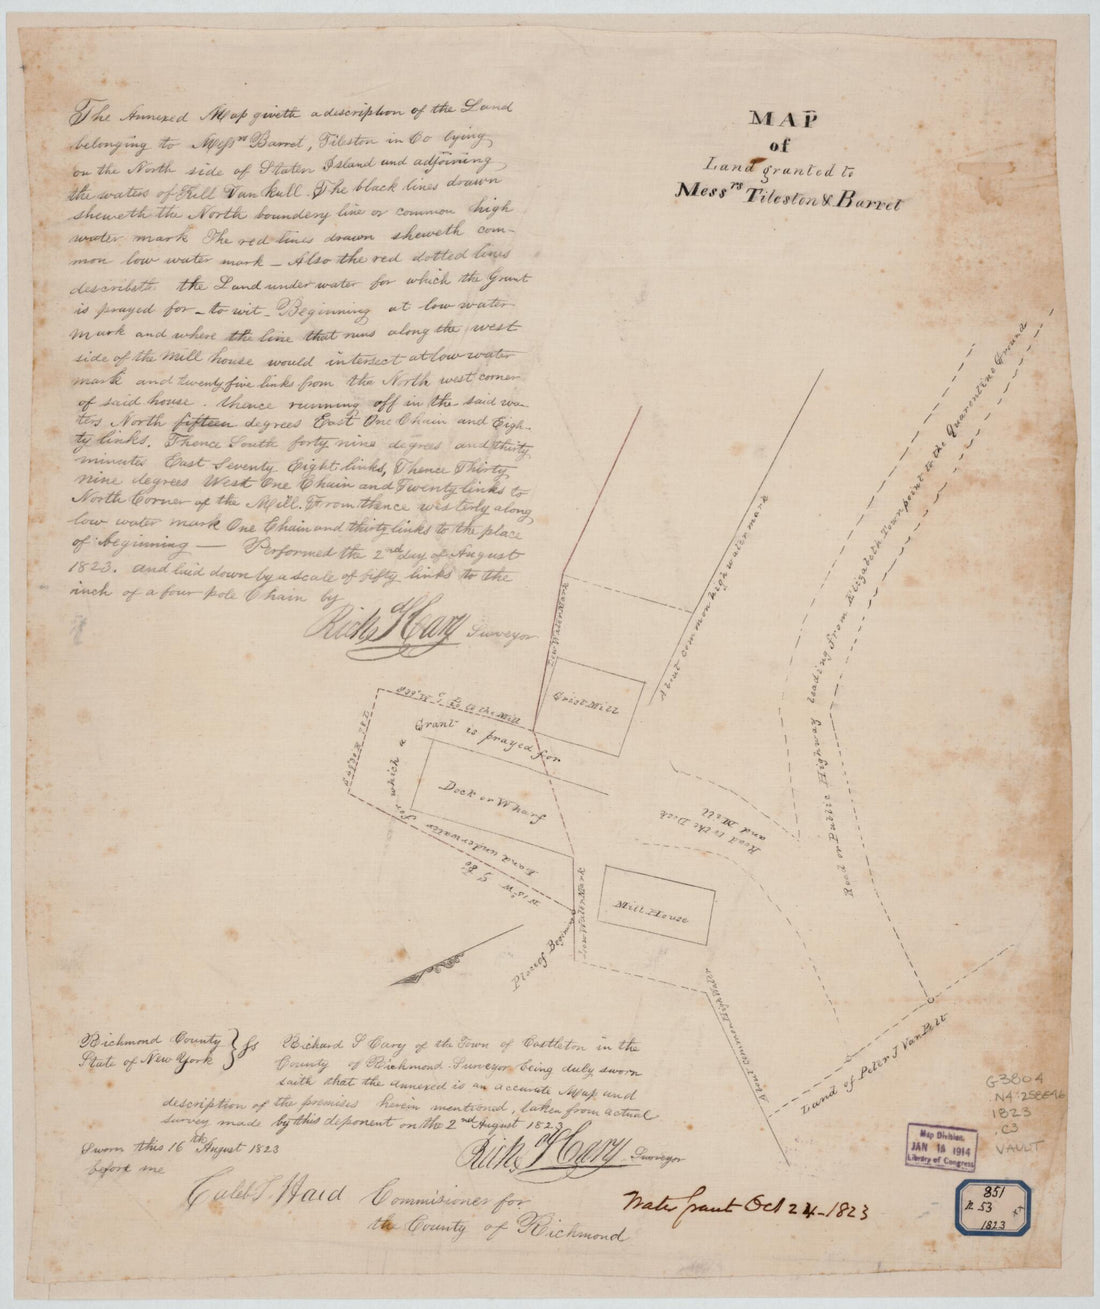 The Annexed Map giveth a description of the Land
belonging to Messrs Barret, Tileston in Co lying
on the North side of Staten Island and adjoining
the waters of Kill Van Kull. The black lines drawn
sheweth the North boundery line or common high
water mark The red lines drawn sheweth com-
mon low water mark – Also the red dotted lines
describeth the Land under water for which the Grant
is prayed for – to wit – Beginning at low water
mark and where the line that runs along the west
side of the Mill house would intersect at low water
mark and twenty five links from the North west corner
of said house. thence running off in the said wa-
ters North fifteen degrees East One Chain and Eigh-
ty links. Thence South forty nine degrees and thirty
minutes East Seventy Eight links, Thence Thirty
nine degrees West One Chain and Twenty links to
North Corner of the Mill. From thence westerly along
low water mark One Chain and thirty links to the place
of beginning — Performed the 2nd day of August
1823. and laid down by a scale of fifty links to the
inch of a four pole Chain by
Richd S Cary Surveyor
MAP
of
Land granted to
Messrs Tileston & Barret
About common high water mark
Road or Public Highway leading from Elizabeth Town point to the Quarentine Ground
Low Water Mark
Grist Mill
to the Mill
Grant is prayed for
for which a
Land under water
Dock or Wharf
Road to the Dock
and Mill
Low Water Mark
Mill House
Place of Beginning
About common High Water
Land of Peter J Van Pelt
Richmond County
State of New York } ss
Richard S Cary of the Town of Castleton in the
County of Richmond Surveyor being duly sworn
saith that the annexed is an accurate Map and
description of the premises herein mentioned, taken from actual
survey made by this deponent on the 2nd August 1823
Sworn this 16th August 1823
before me
Richd S Cary Surveyor
Caleb T Ward Commisioner for
the County of Richmond
Water grant Oct 24 – 1823
G3804
.N4:2S8E46
1823
.C3
VAULT
Map Division,
JAN 15 1914
Library of Congress
851
n 53
1823